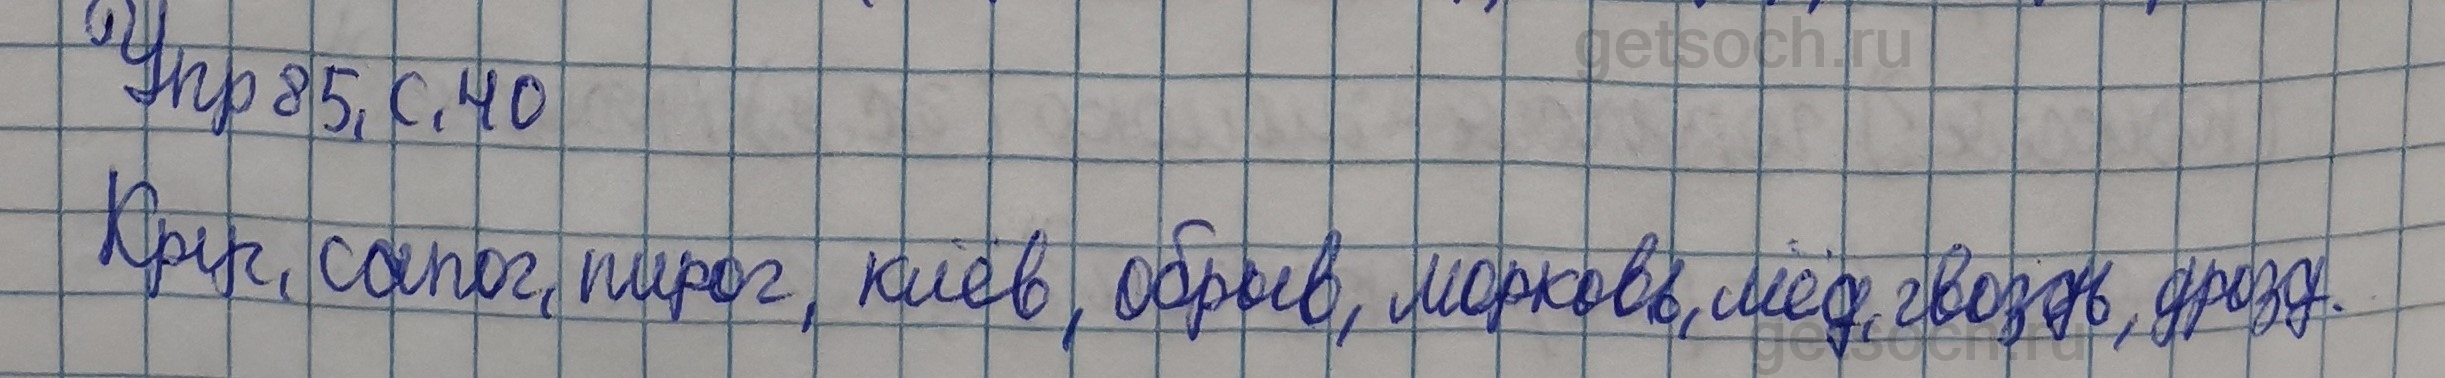 getsoch.ru
Упр 85, с. 40
Круг, сапог, пирог, клёв, обрыв, морковь, мёд, гвоздь, дрозд.
getsoch.ru